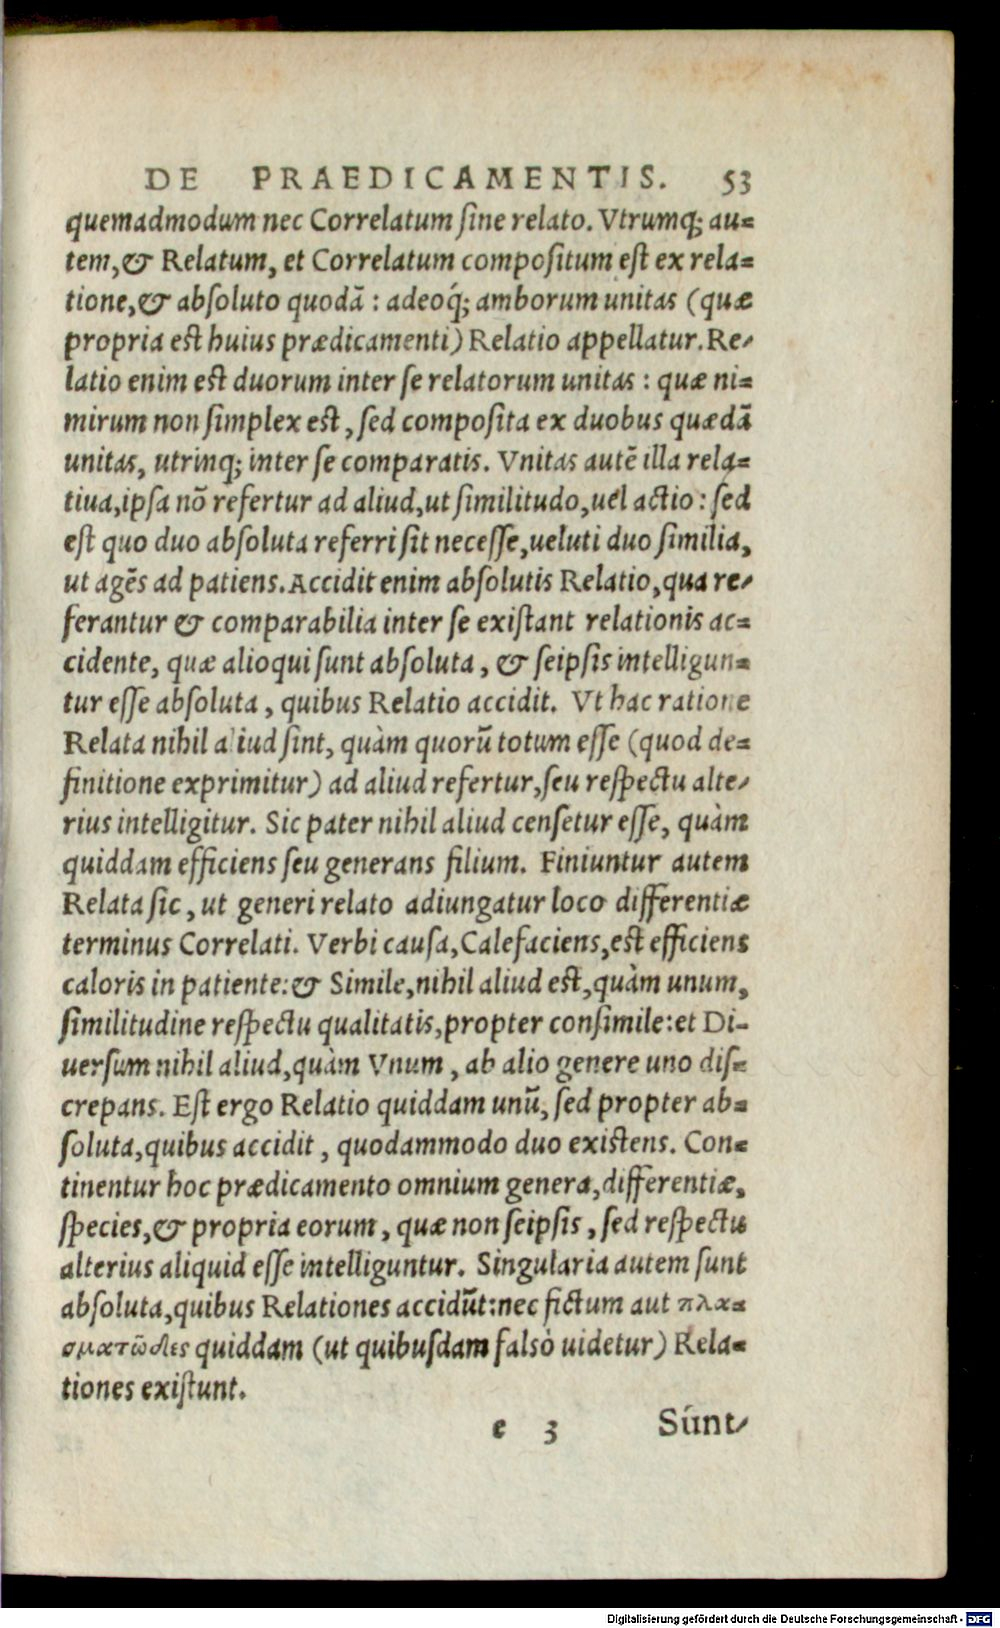 DE PRAEDICAMENTIS. 53
quemadmodum nec Correlatum sine relato. Vtrumq; au-
tem,& Relatum, et Correlatum compositum est ex rela-
tione,& absoluto quodā : adeoq́; amborum unitas (quæ
propria est huius prædicamenti) Relatio appellatur. Re-
latio enim est duorum inter se relatorum unitas : quæ ni-
mirum non simplex est, sed composita ex duobus quædā
unitas, utrinq; inter se comparatis. Vnitas autē illa rela-
tiua,ipsa nō refertur ad aliud,ut similitudo,uel actio : sed
est quo duo absoluta referri sit necesse,ueluti duo similia,
ut agēs ad patiens. Accidit enim absolutis Relatio,qua re-
ferantur & comparabilia inter se existant relationis ac-
cidente, quæ alioqui sunt absoluta, & seipsis intelligun-
tur esse absoluta, quibus Relatio accidit. Vt hac ratione
Relata nihil aliud sint, quàm quorū totum esse (quod de-
finitione exprimitur) ad aliud refertur,seu respectu alte-
rius intelligitur. Sic pater nihil aliud censetur esse, quàm
quiddam efficiens seu generans filium. Finiuntur autem
Relata sic, ut generi relato adiungatur loco differentiæ
terminus Correlati. Verbi causa,Calefaciens,est efficiens
caloris in patiente:& Simile,nihil aliud est,quàm unum,
similitudine respectu qualitatis,propter consimile:et Di-
uersum nihil aliud,quàm Vnum, ab alio genere uno dis-
crepans. Est ergo Relatio quiddam unū, sed propter ab-
soluta,quibus accidit, quodammodo duo existens. Con-
tinentur hoc prædicamento omnium genera,differentiæ,
species,& propria eorum, quæ non seipsis, sed respectu
alterius aliquid esse intelliguntur. Singularia autem sunt
absoluta,quibus Relationes accidūt:nec fictum aut πλα-
σματῶδες quiddam (ut quibusdam falsò uidetur) Rela-
tiones existunt.
e 3 Sunt
Digitalisierung gefördert durch die Deutsche Forschungsgemeinschaft - DFG